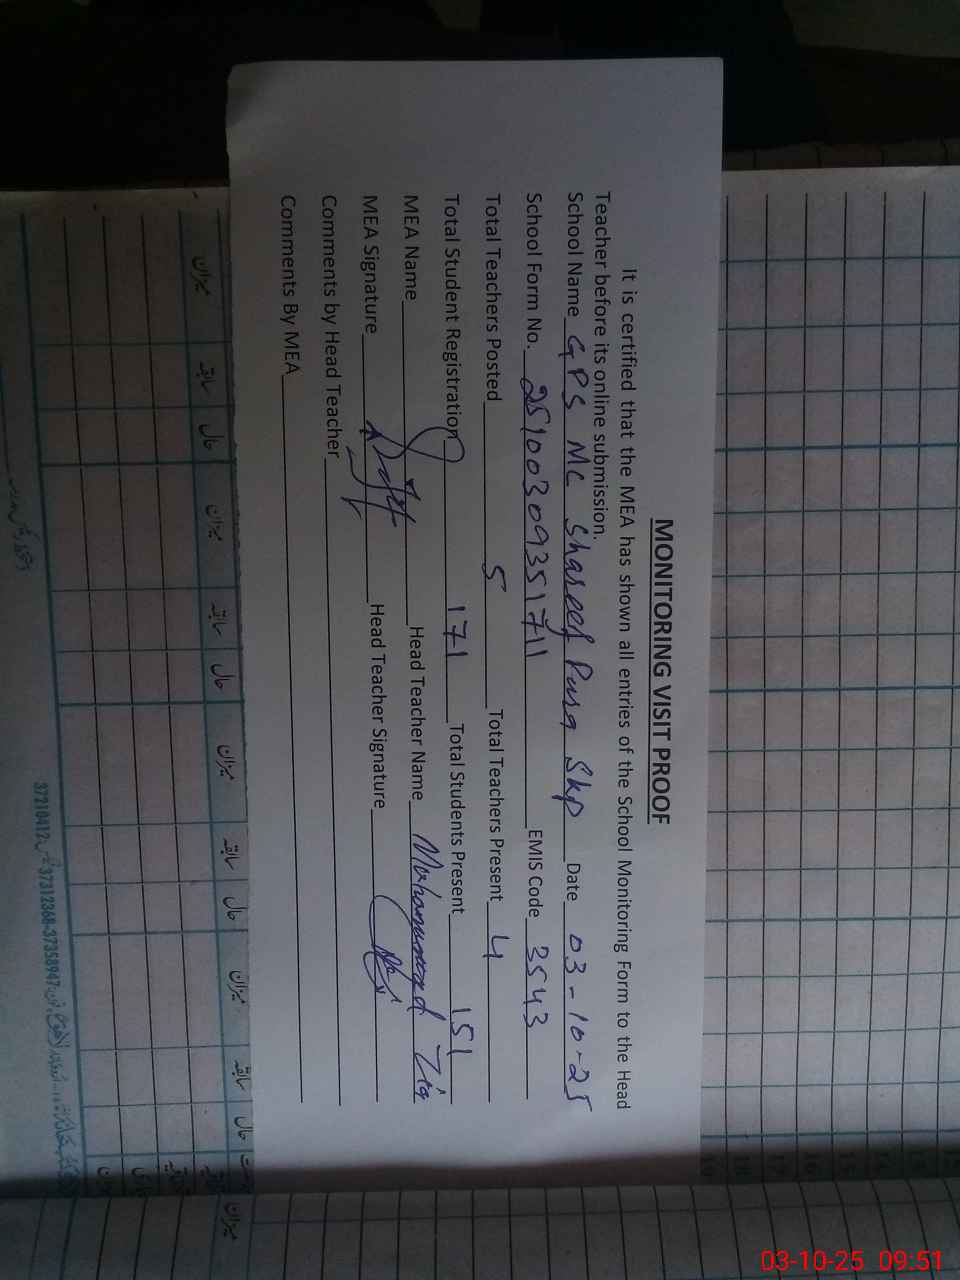 MONITORING VISIT PROOF
It is certified that the MEA has shown all entries of the School Monitoring Form to the Head
Teacher before its online submission.
School Name GPS MC Shareef Pura Skp Date 03-10-25
School Form No. 25100309351711 EMIS Code 3543
Total Teachers Posted 5 Total Teachers Present 4
Total Student Registration 171 Total Students Present 151
MEA Name Head Teacher Name Mohammad Zia
MEA Signature Head Teacher Signature
Comments by Head Teacher
Comments By MEA
میزان سابقہ حال میزان سابقہ حال میزان سابقہ حال میزان سابقہ حال میزان
37210412 37312368-37358947
12 13 14 15 16 17 18 19
03-10-25 09:51